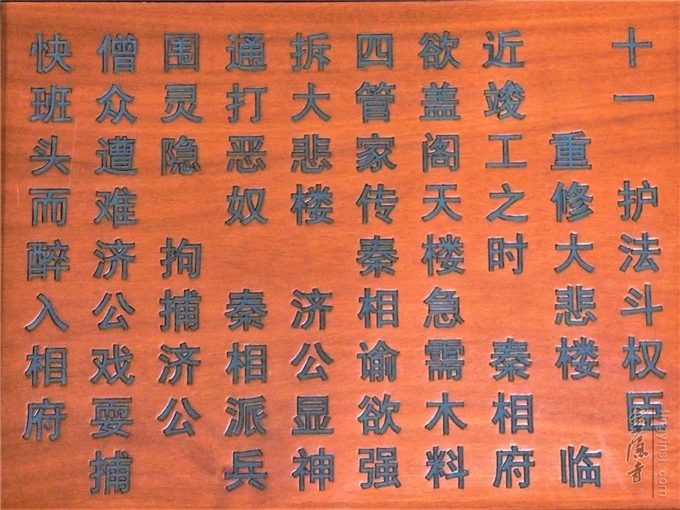 十一 护法斗权臣
重修大悲楼 临
近竣工之时 秦相府
欲盖阁天楼急需木料
四管家传秦相谕欲强
拆大悲楼 济公显神
通打恶奴 秦相派兵
围灵隐 拘捕济公
僧众遭难济公戏耍捕
快班头而醉入相府